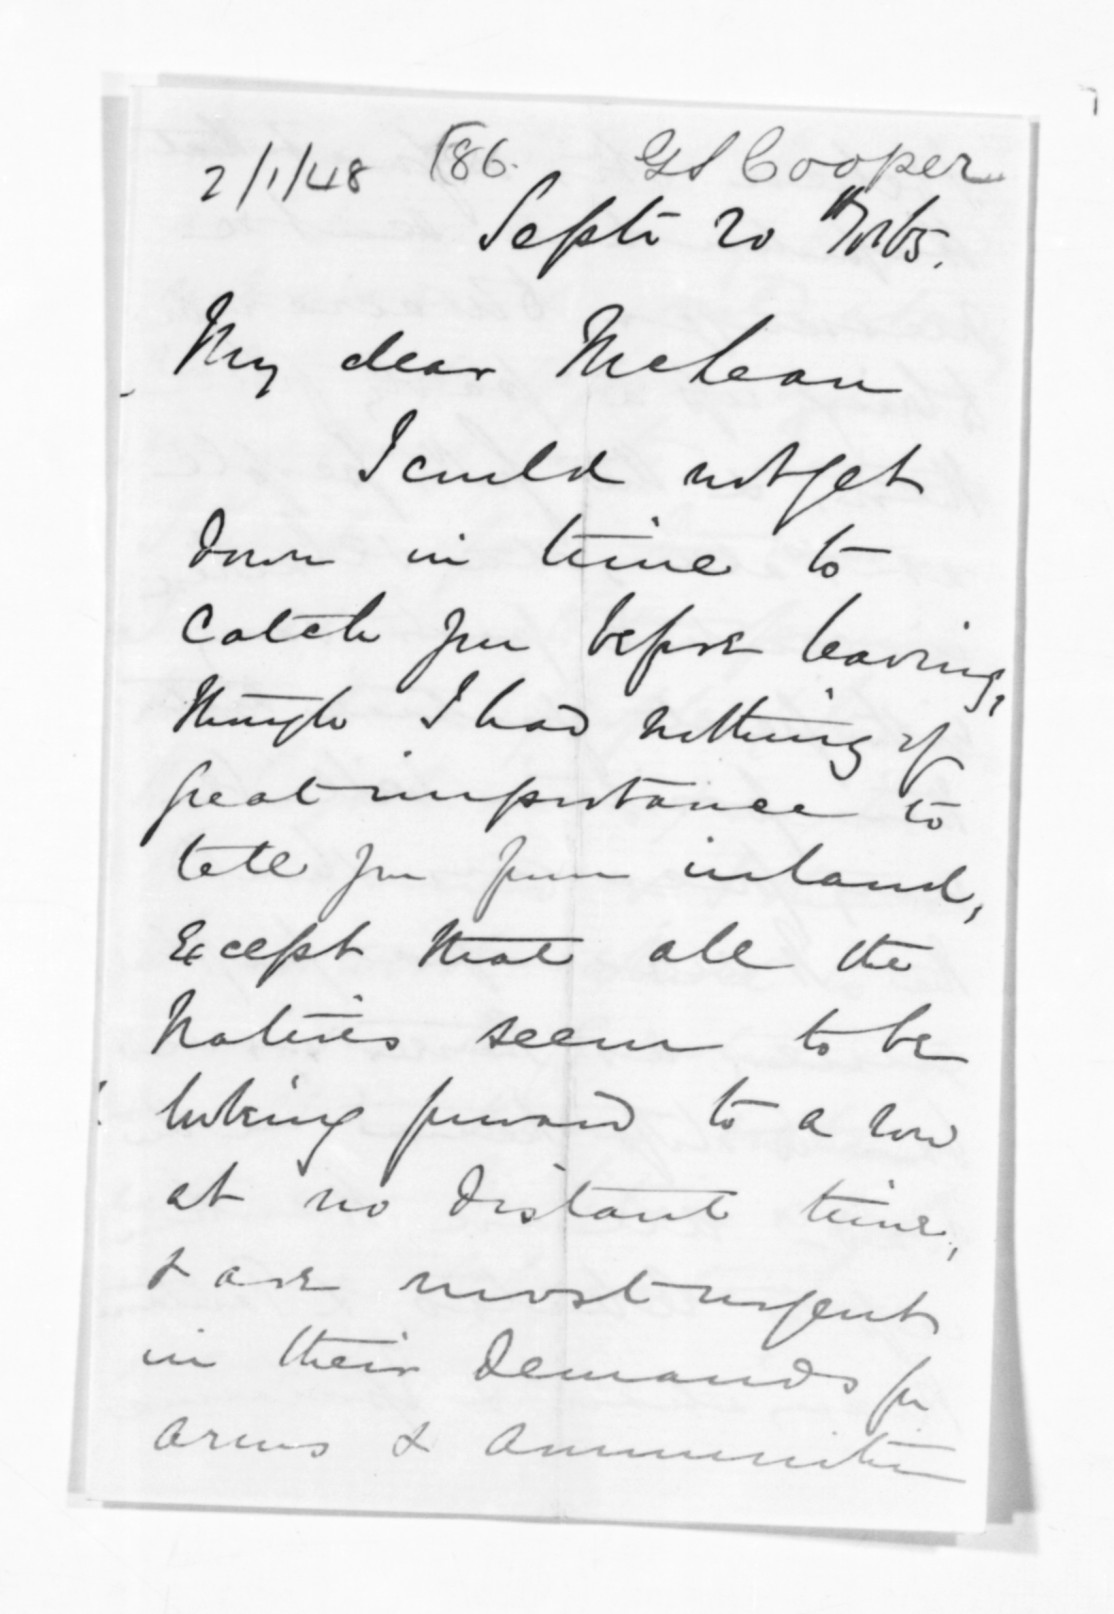 2/1/48 186. GS Cooper
Septr 20th /65.
My dear McLean
I could not get
down in time to
catch you before leaving,
though I had nothing of
great importance to
tell you from inland,
except that all the
Natives seem to be
looking forward to a row
at no distant time,
& are most urgent
in their demands for
arms & ammunition